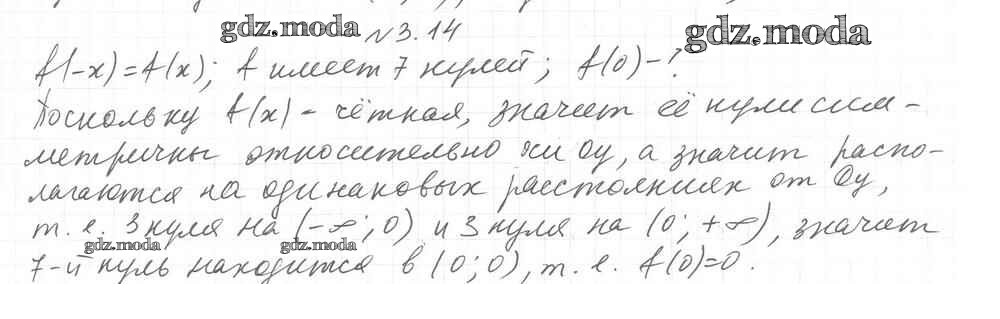 gdz.moda
gdz.moda
№3.14
f(-x)=f(x); f имеет 7 нулей; f(0)-?
Поскольку f(x) - чётная, значит её нули сим-
метричны относительно оси Oy, а значит распо-
лагаются на одинаковых расстояниях от Oy,
т. е. 3 нуля на (-∞; 0) и 3 нуля на (0; +∞), значит
gdz.moda gdz.moda
7-й нуль находится в (0; 0), т. е. f(0)=0.